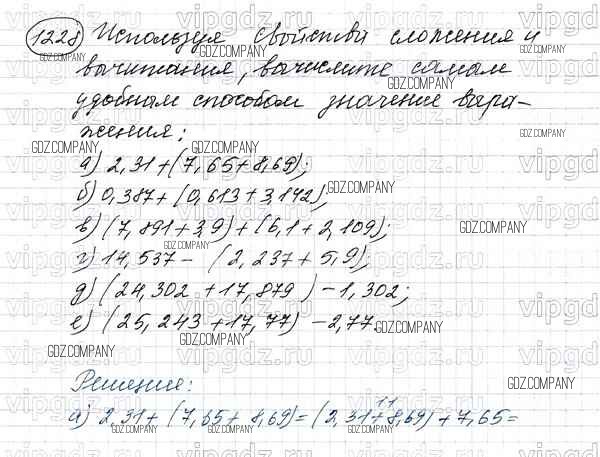 1228 Используя свойства сложения и
вычитания, вычислите самым
удобным способом значение выра-
жения:
а) 2,31+(7,65+8,69);
б) 0,387+(0,613+3,142);
в) (7,891+3,9)+(6,1+2,109);
г) 14,537 - (2,237+5,9);
д) (24,302 +17,879) -1,302;
е) (25,243+17,77) -2,77.
Решение:
а) 2,31+ (7,65+ 8,69)=(2,31+8,69)+7,65=
11
vipgdz.ru
GDZ.COMPANY